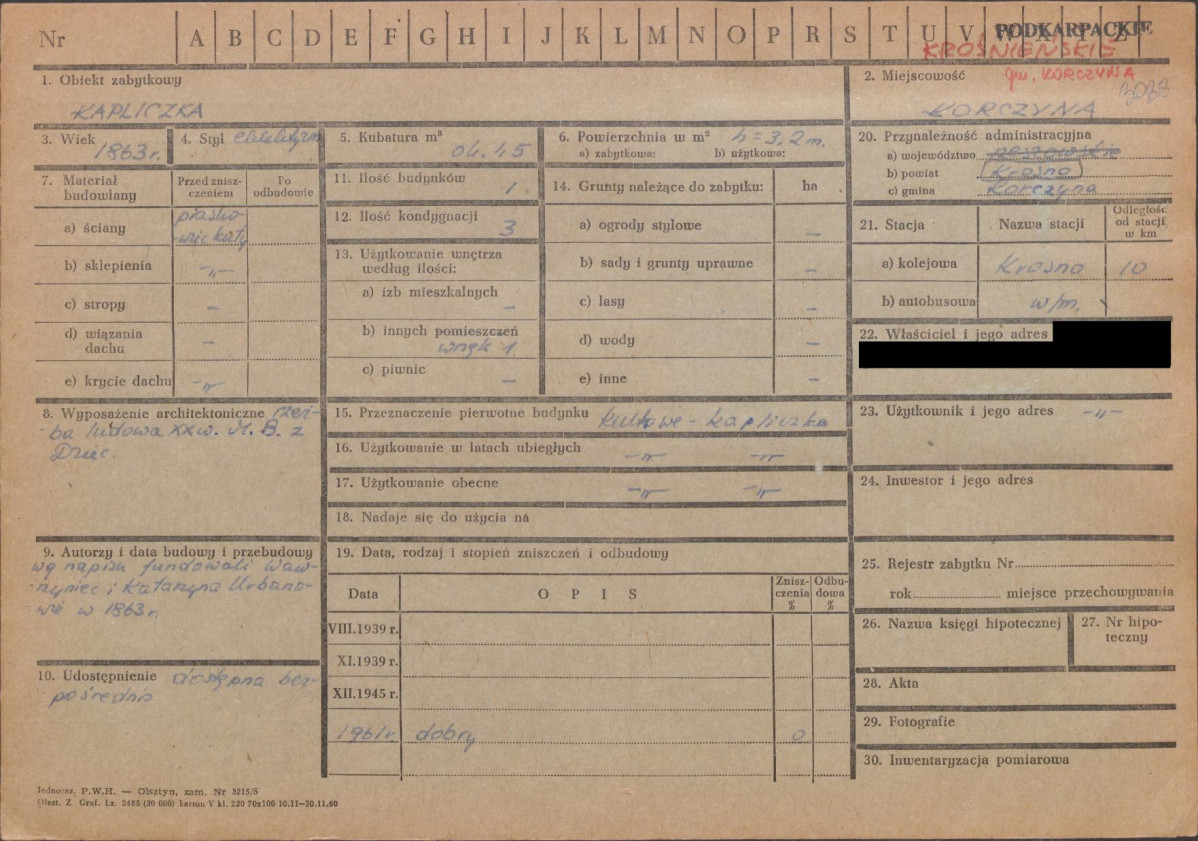 Nr A B C D E F G H I J K L M N O P R S T U V W X Y Z
PODKARPACKIE
KROŚNIEŃSKIE
gm. KORCZYNA
1. Obiekt zabytkowy
KAPLICZKA
2. Miejscowość
KORCZYNA
3. Wiek
1863 r.
4. Styl
5. Kubatura m³
ok. 45
6. Powierzchnia w m² h = 3,2 m.
a) zabytkowa: b) użytkowa:
20. Przynależność administracyjna
a) województwo rzeszowskie
b) powiat Krosno
c) gmina Korczyna
7. Materiał budowlany
Przed znisz-
czeniem
Po
odbudowie
a) ściany piasko-
wiec kuty
b) sklepienia -„-
c) stropy –
d) wiązania
dachu –
e) krycie dachu -„-
11. Ilość budynków 1.
12. Ilość kondygnacji 3
13. Użytkowanie wnętrza
według ilości:
a) izb mieszkalnych –
b) innych pomieszczeń
wnęk 1
c) piwnic –
14. Grunty należące do zabytku: ha
a) ogrody stylowe –
b) sady i grunty uprawne –
c) lasy –
d) wody –
e) inne –
21. Stacja
Nazwa stacji
Odległość
od stacji
w km
a) kolejowa Krosno 10
b) autobusowa w/m.
22. Właściciel i jego adres
8. Wyposażenie architektoniczne rzeź-
ba ludowa XX w. M. B. z
Dziec.
15. Przeznaczenie pierwotne budynku kultowe - kapliczka
16. Użytkowanie w latach ubiegłych -„- -„-
17. Użytkowanie obecne -„- -„-
18. Nadaje się do użycia na
23. Użytkownik i jego adres -„-
24. Inwestor i jego adres
9. Autorzy i data budowy i przebudowy
wg napisu fundowali Waw-
rzyniec i Katarzyna Urbano-
wie w 1863 r.
10. Udostępnienie dostępna bez-
pośrednio
19. Data, rodzaj i stopień zniszczeń i odbudowy
Data
O P I S
Znisz-
czenia
%
Odbu-
dowa
%
VIII.1939 r.
XI.1939 r.
XII.1945 r.
1961 r. dobry 0
25. Rejestr zabytku Nr
rok miejsce przechowywania
26. Nazwa księgi hipotecznej
27. Nr hipo-
teczny
28. Akta
29. Fotografie
30. Inwentaryzacja pomiarowa
Jednoraz. P.W.H. — Olsztyn, zam. Nr 3215/S
Olszt. Z. Graf. Lz. 2485 (30 000) karton V kl. 220 70x100 10.11—30.11.60